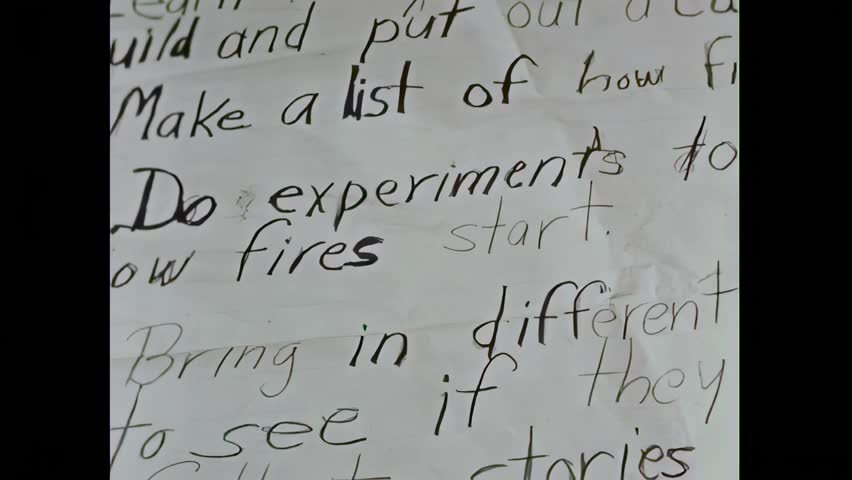 and put out a
Make a list of how
Do experiments to
ow fires start.
Bring in different
to see if they
stories